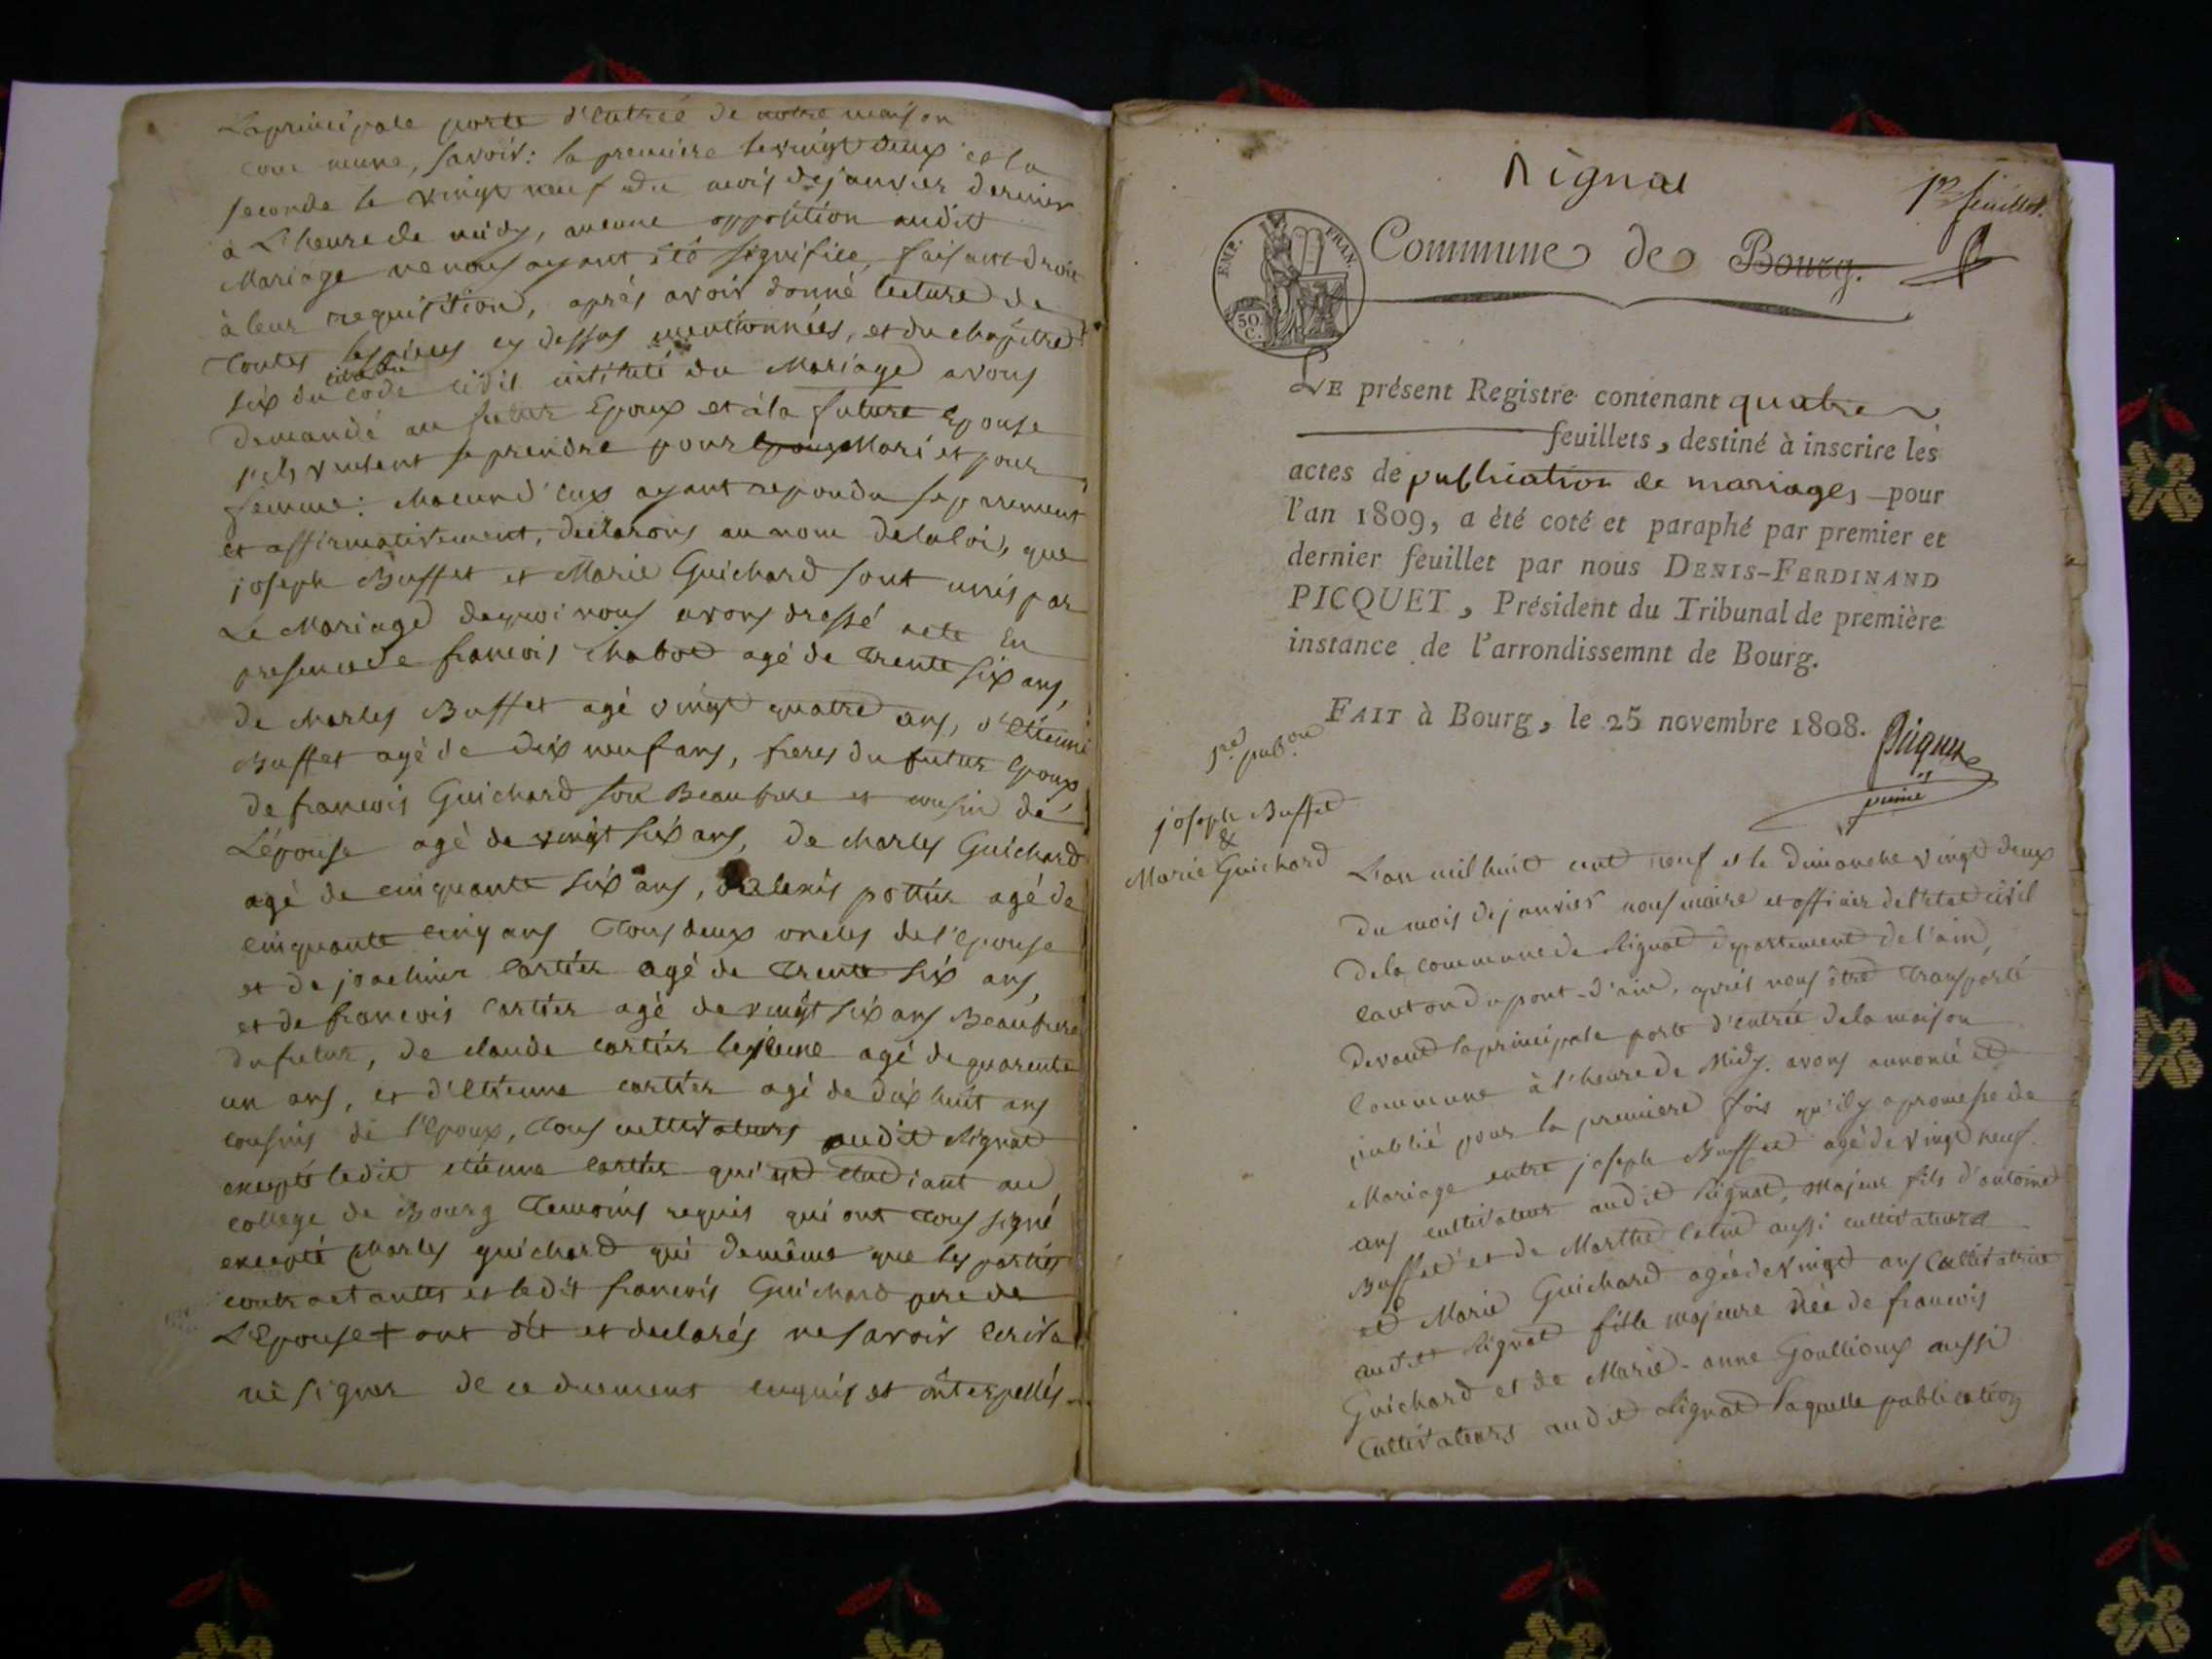 La principale porte d'Entreé de notre maison
commune, savoir: la premiere le vingt deux et la
seconde le vingt neuf du mois de janvier dernier
à L'heure de midy, aucune opposition audit
Mariage ne nous ayant été signifiée, faisant droit
à leur requisition, aprés avoir donné lecture de
toutes les piéces cy dessus mentionnées, et du chapitre
six du code civil intitulé du Mariage avons
demandé au futur Epoux et à la future Epouse
s'ils veulent se prendre pour Epoux Mari et pour
femme: chacun d'eux ayant repondu separement
et affirmativement, declarons au nom de la loi, que
joseph Buffet et Marie Guichard sont unis par
Le Mariage de quoi nous avons dressé acte En
presence de francois Chabot agé de trente six ans,
de charles Buffet agé vingt quatre ans, d'Etienne
Buffet agé de dix neuf ans, freres du futur Epoux,
de francois Guichard son Beaufrere et cousin de
L'épouse agé de vingt six ans, de charles Guichard
agé de cinquante six ans, d'alexis pottier agé de
cinquante cinq ans tous deux oncles de l'epouse
et de joachim cartier agé de trente six ans,
et de francois cartier agé de vingt six ans Beaufrere
du futur, de claude cartier le jeune agé de quarente
un ans, et d'Etienne cartier agé de dix huit ans
cousins de l'Epoux, tous cultivateurs audit Rignat
excepté ledit etienne cartier qui est etudiant au
college de Bourg temoins requis qui ont tous signé
excepté charles guichard qui de même que les parties
contractantes et ledit francois Guichard pere de
L'Epouse + ont dit et declarés ne savoir Ecrire
ni signer de ce duement enquis et interpellés
Rignat
1er feuillet.
EMP. FRAN.
50 C.
Commune de Bourg.
LE présent Registre contenant quatre
feuillets, destiné à inscrire les
actes de publication de mariages pour
l'an 1809, a été coté et paraphé par premier et
dernier feuillet par nous DENIS-FERDINAND
PICQUET, Président du Tribunal de première
instance de l'arrondissemnt de Bourg.
FAIT à Bourg, le 25 novembre 1808.
Picquet
1re pub.on
joseph Buffet
&
Marie Guichard
L'an mil huit cent neuf et le dimanche vingt deux
du mois de janvier nous maire et officier de l'etat civil
de la commune de Rignat departement de l'ain,
canton du pont-d'ain, aprés nous être transporté
devant la principale porte d'entrée de la maison
Commune à l'heure de Midy. avons annoncé et
publié pour la premiere fois qu'il y a promesse de
Mariage entre joseph Buffet agé de vingt neuf
ans cultivateur audit Rignat, Majeur fils d'antoine
Buffet et de Marthe aussi cultivateurs
et Marie Guichard agée de vingt ans Cultivatrice
audit Rignat fille majeure née de francois
Guichard et de Marie-anne Goullioux aussi
Cultivateurs audit Rignat laquelle publication